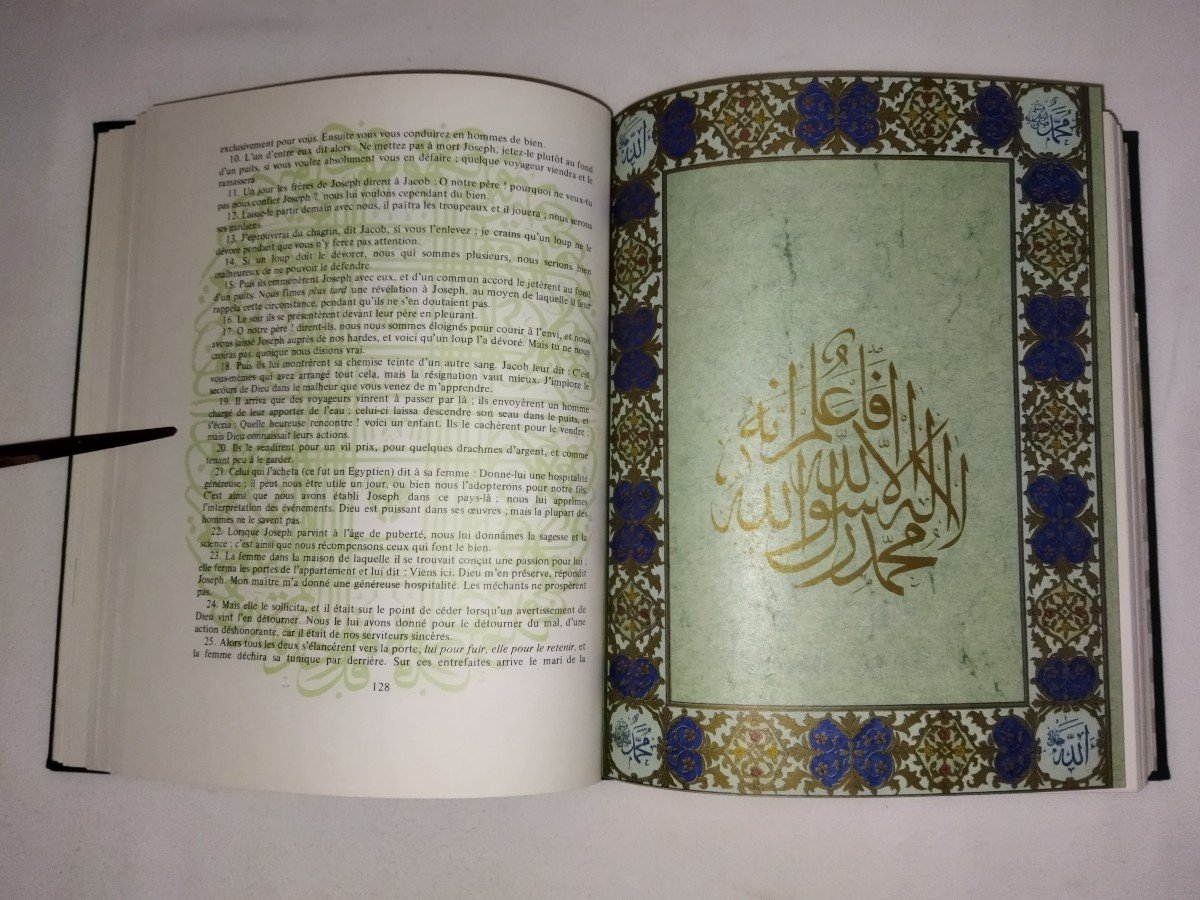 exclusivement pour vous. Ensuite vous vous conduirez en hommes de bien.
10. L'un d'entre eux dit alors : Ne mettez pas à mort Joseph, jetez-le plutôt au fond
d'un puits, si vous voulez absolument vous en défaire ; quelque voyageur viendra et le
ramassera.
11. Un jour les frères de Joseph dirent à Jacob : O notre père ! pourquoi ne veux-tu
pas nous confier Joseph ? nous lui voulons cependant du bien.
12. Laisse-le partir demain avec nous, il paîtra les troupeaux et il jouera ; nous serons
ses gardiens.
13. J'éprouverai du chagrin, dit Jacob, si vous l'enlevez ; je crains qu'un loup ne le
dévore pendant que vous n'y ferez pas attention.
14. Si un loup doit le dévorer, nous qui sommes plusieurs, nous serions bien
malheureux de ne pouvoir le défendre.
15. Puis ils emmenèrent Joseph avec eux, et d'un commun accord le jetèrent au fond
d'un puits. Nous fîmes plus tard une révélation à Joseph, au moyen de laquelle il leur
rappela cette circonstance, pendant qu'ils ne s'en doutaient pas.
16. Le soir ils se présentèrent devant leur père en pleurant.
17. O notre père ! dirent-ils, nous nous sommes éloignés pour courir à l'envi, et nous
avons laissé Joseph auprès de nos hardes, et voici qu'un loup l'a dévoré. Mais tu ne nous
croiras pas, quoique nous disions vrai.
18. Puis ils lui montrèrent sa chemise teinte d'un autre sang. Jacob leur dit : C'est
vous-mêmes qui avez arrangé tout cela, mais la résignation vaut mieux. J'implore le
secours de Dieu dans le malheur que vous venez de m'apprendre.
19. Il arriva que des voyageurs vinrent à passer par là ; ils envoyèrent un homme
chargé de leur apporter de l'eau ; celui-ci laissa descendre son seau dans le puits, et
s'écria : Quelle heureuse rencontre ! voici un enfant. Ils le cachèrent pour le vendre ;
mais Dieu connaissait leurs actions.
20. Ils le vendirent pour un vil prix, pour quelques drachmes d'argent, et comme
tenant peu à le garder.
21. Celui qui l'acheta (ce fut un Egyptien) dit à sa femme : Donne-lui une hospitalité
généreuse ; il peut nous être utile un jour, ou bien nous l'adopterons pour notre fils.
C'est ainsi que nous avons établi Joseph dans ce pays-là ; nous lui apprîmes
l'interprétation des événements. Dieu est puissant dans ses œuvres ; mais la plupart des
hommes ne le savent pas.
22. Lorsque Joseph parvint à l'âge de puberté, nous lui donnâmes la sagesse et la
science ; c'est ainsi que nous récompensons ceux qui font le bien.
23. La femme dans la maison de laquelle il se trouvait conçut une passion pour lui ;
elle ferma les portes de l'appartement et lui dit : Viens ici. Dieu m'en préserve, répondit
Joseph. Mon maître m'a donné une généreuse hospitalité. Les méchants ne prospèrent
pas.
24. Mais elle le sollicita, et il était sur le point de céder lorsqu'un avertissement de
Dieu vint l'en détourner. Nous le lui avons donné pour le détourner du mal, d'une
action déshonorante, car il était de nos serviteurs sincères.
25. Alors tous les deux s'élancèrent vers la porte, lui pour fuir, elle pour le retenir, et
la femme déchira sa tunique par derrière. Sur ces entrefaites arrive le mari de la
128
الله
محمد
فاعلم أنه
لا إله إلا الله
محمد رسول الله
محمد
الله